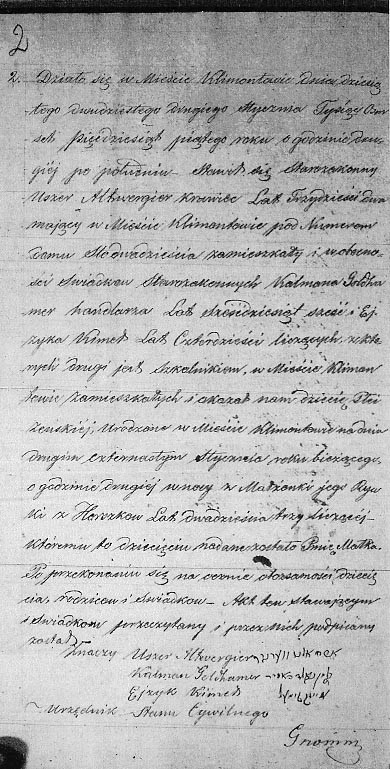 2
2. Działo się w Mieście Klimontowie dnia dziecią
tego dwudziestego drugiego Stycznia Tysiąc Ośm
set Pięćdziesiąt piątego roku o godzinie dru
giéj po południu Stawił się Starozakonny
Uszer Altwergier krawiec Lat Trzydzieści dwa
mający w Mieście Klimontowie pod Numerem
domu Sto dwadzieścia zamieszkały i w obecno
ści Świadków Starozakonnych Kalmana Goldha
mer handlarza Lat sześćdziesiąt sześć i Ej
zyka Kimel Lat Czterdzieści liczących, z któ
rych drugi jest Szkolnikiem, w Mieście Klimon
towie zamieszkałych i okazał nam dziecię płci
żeńskiej, Urodzone w Mieście Klimontowie na dniu
Stycznia roku bieżącego
o godzinie drugiéj w nocy z Małżonki jego Ryw
ki z Herszków Lat dwadzieścia trzy liczącéj
któremu to dziecięciu nadane zostało Imię Małka.
Po przekonaniu się na ocznie otożsamości dziecię
cia, rodziców i Świadków Akt ten stawającym
i Świadkom przeczytany i przez nich podpisany
został
Znaczy Uszer Altwergier
Kalman Goldhamer
Ejzyk Kimel
Urzędnik Stanu Cywilnego